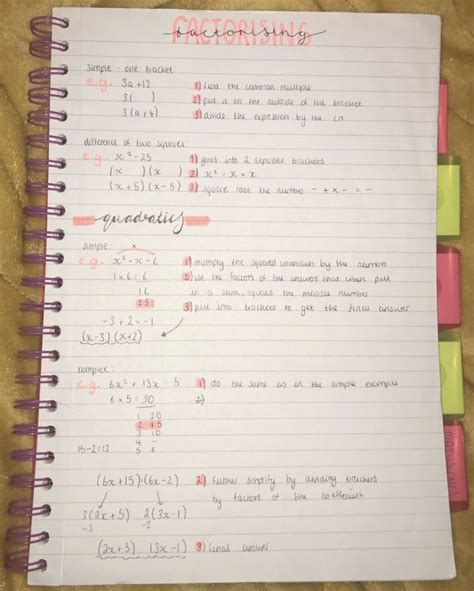 FACTORISING
factorising
simple - one bracket
e.g. 3a+12 1) find the common multiple
3( ) 2) put it on the outside of the bracket
3(a+4) 3) divide the expression by the CM
difference of two squares:
e.g x²-25 1) goes into 2 seperate brackets
(x )(x ) 2) x² = x × x
(x+5)(x-5) 3) square root the number - + × - = -
quadratics
simple: x
e.g. x²-x-6 1) multiply the squared unknown by the number
1×6=6 2) use the factors of the answers that when put
16 in a sum, equals the middle number
23 3) put into brackets to get the final answer
-3+2=-1
(x-3)(x+2)
complex:
e.g. 6x²+13x-5 1) do the same as in the simple example
6×5=30
1 30
2 15
3 10
4 -
15-2=13 5 6
(6x+15)(6x-2) 2) further simplify by dividing brackets
by factors of the coefficient
3(2x+5) 2(3x-1)
÷3 ÷2
(2x+5) (3x-1) 3) final answer